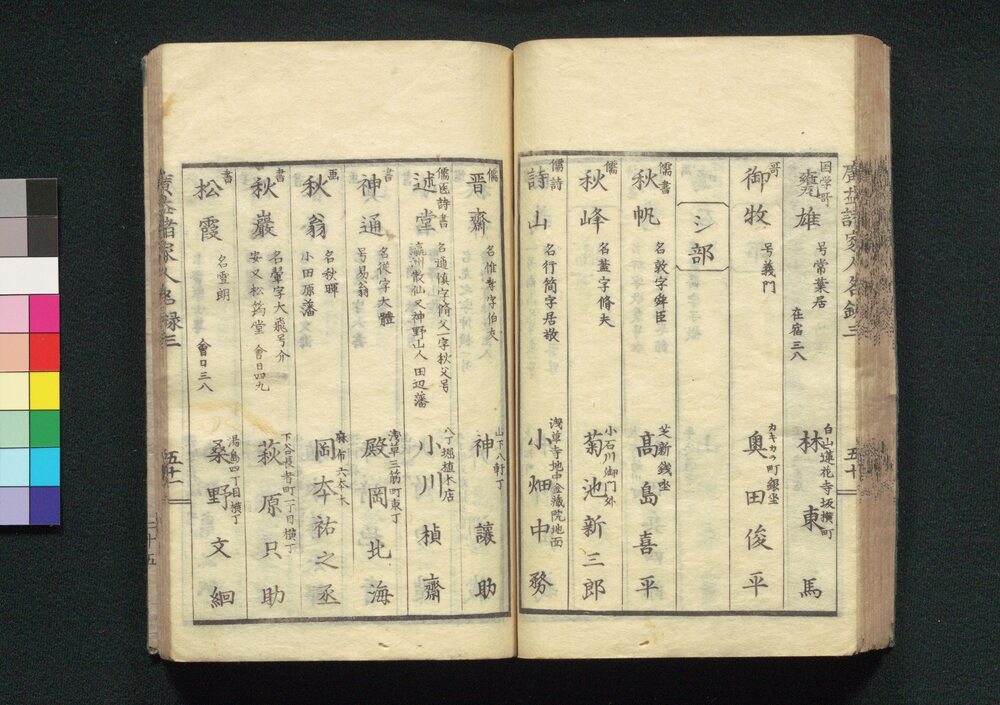 廣益諸家人名録三 五十
国学哥 雄 号常葉居 在宿三八 白山蓮花寺坂横町 林東馬
哥 御牧 号義門 カキカラ町銀坐 奥田俊平
シ部
儒書 秋帆 名敦字舜臣 芝新銭坐 高島喜平
儒 秋峰 名蓋字脩夫 小石川御門外 菊池新三郎
儒詩 詩山 名行簡字居敬 浅草寺地中金蔵院地面 小畑中務
儒 晋齋 名惟孝字伯友 山下八軒丁 神讓助
儒医詩書 述堂 名適慎字脩父一字秋父号瀛洲散仙又神野山人田辺藩 八丁堀植木店 小川楨齋
書 神通 名従字大體号易翁 浅草三筋町東丁 殿岡北海
画 秋翁 名秋暉小田原藩 麻布六本木 岡本祐之丞
書 秋巖 名鞏字大飛号介安又松筠堂 會日四九 下谷長者町一丁目横丁 萩原只助
書 松霞 名雪朗 會日三八 湯島四丁目横丁 桑野文絅
廣益諸家人名録三 五十一